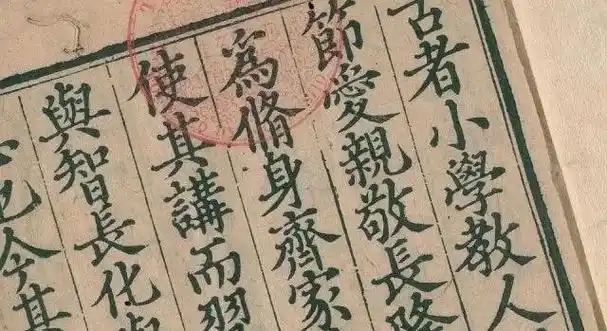 古者小學教人
節愛親敬長隆
為脩身齊家
使其講而習
與智長化與
也今其